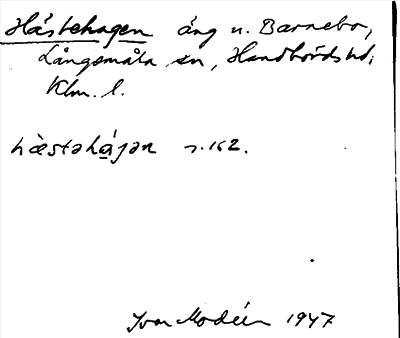 Hästehagen äng u. Barnebo,
Långemåla sn, Handbörds hd,
Klm. l.
hæ̀stəhá̱jən s. 162.
Ivar Modéer 1947